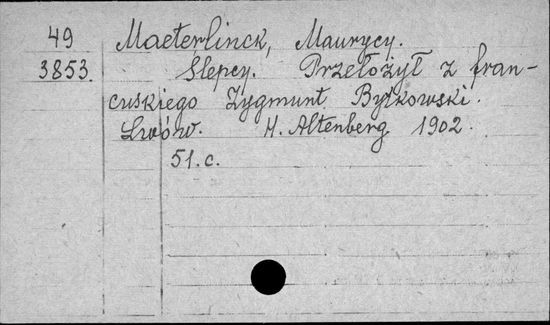 49 Maeterlinck, Maurycy.
3853. Slepcy. Przełożył z fran-
cuskiego Zygmunt Bytkowski.
Lwów. H. Altenberg. 1902.
51. c.